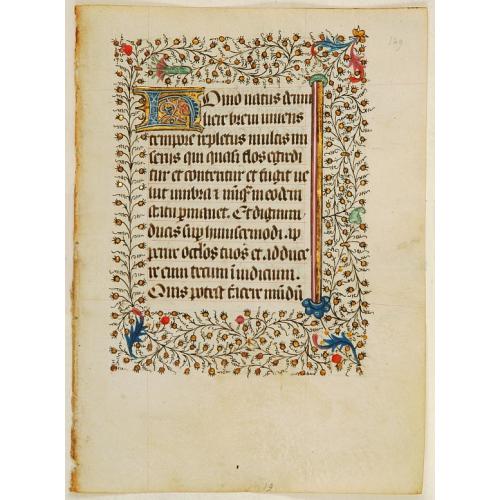 149
Homo natus de mu
liere brevi vivens
tempore repletus multis mi
seriis qui quasi flos egredi
tur et conteritur et fugit ve
lut umbra et nūq̄ in eodem s
tatu p̄manet. Et dignum
ducis sup̄ huiuscemodi ap
perire oc̄los tuos et adduce
re eum tecum ī iudicium.
Quis potest facere mūdū
19